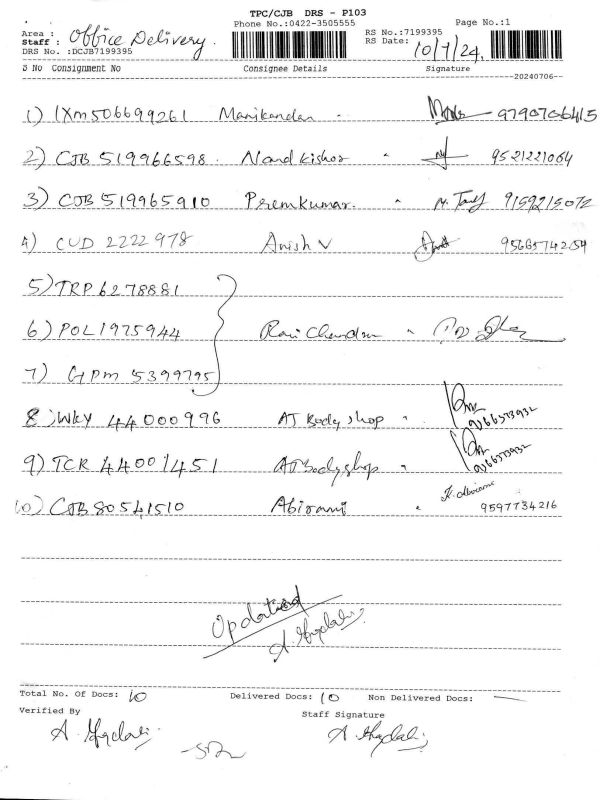 TPC/CJB DRS - P103
Phone No.:0422-3505555
Page No.:1
Area : Office Delivery.
Staff :
DRS No. :DCJB7199395
RS No.:7199395
RS Date: 10/7/24.
S No Consignment No Consignee Details Signature
20240706
1) IXM506699261 Manikandan 9790706415
2) CJB 519966598. Nand kishor " 9521221064
3) CJB 519965910 Premkumar. " 9159215072
4) CUD 2222978 Anish V 9566574254
5) TRP 6278881
6) POL1975944 Ravi Chandran "
7) GPM 5399795
8) WKY 44000996 AJ Body shop "
9) TCR 44001451 AJ Bodyshop "
10) CJB80541510 Abirami " 9597734216
Updated
Total No. Of Docs: 10 Delivered Docs: 10 Non Delivered Docs: —
Verified By
Staff Signature